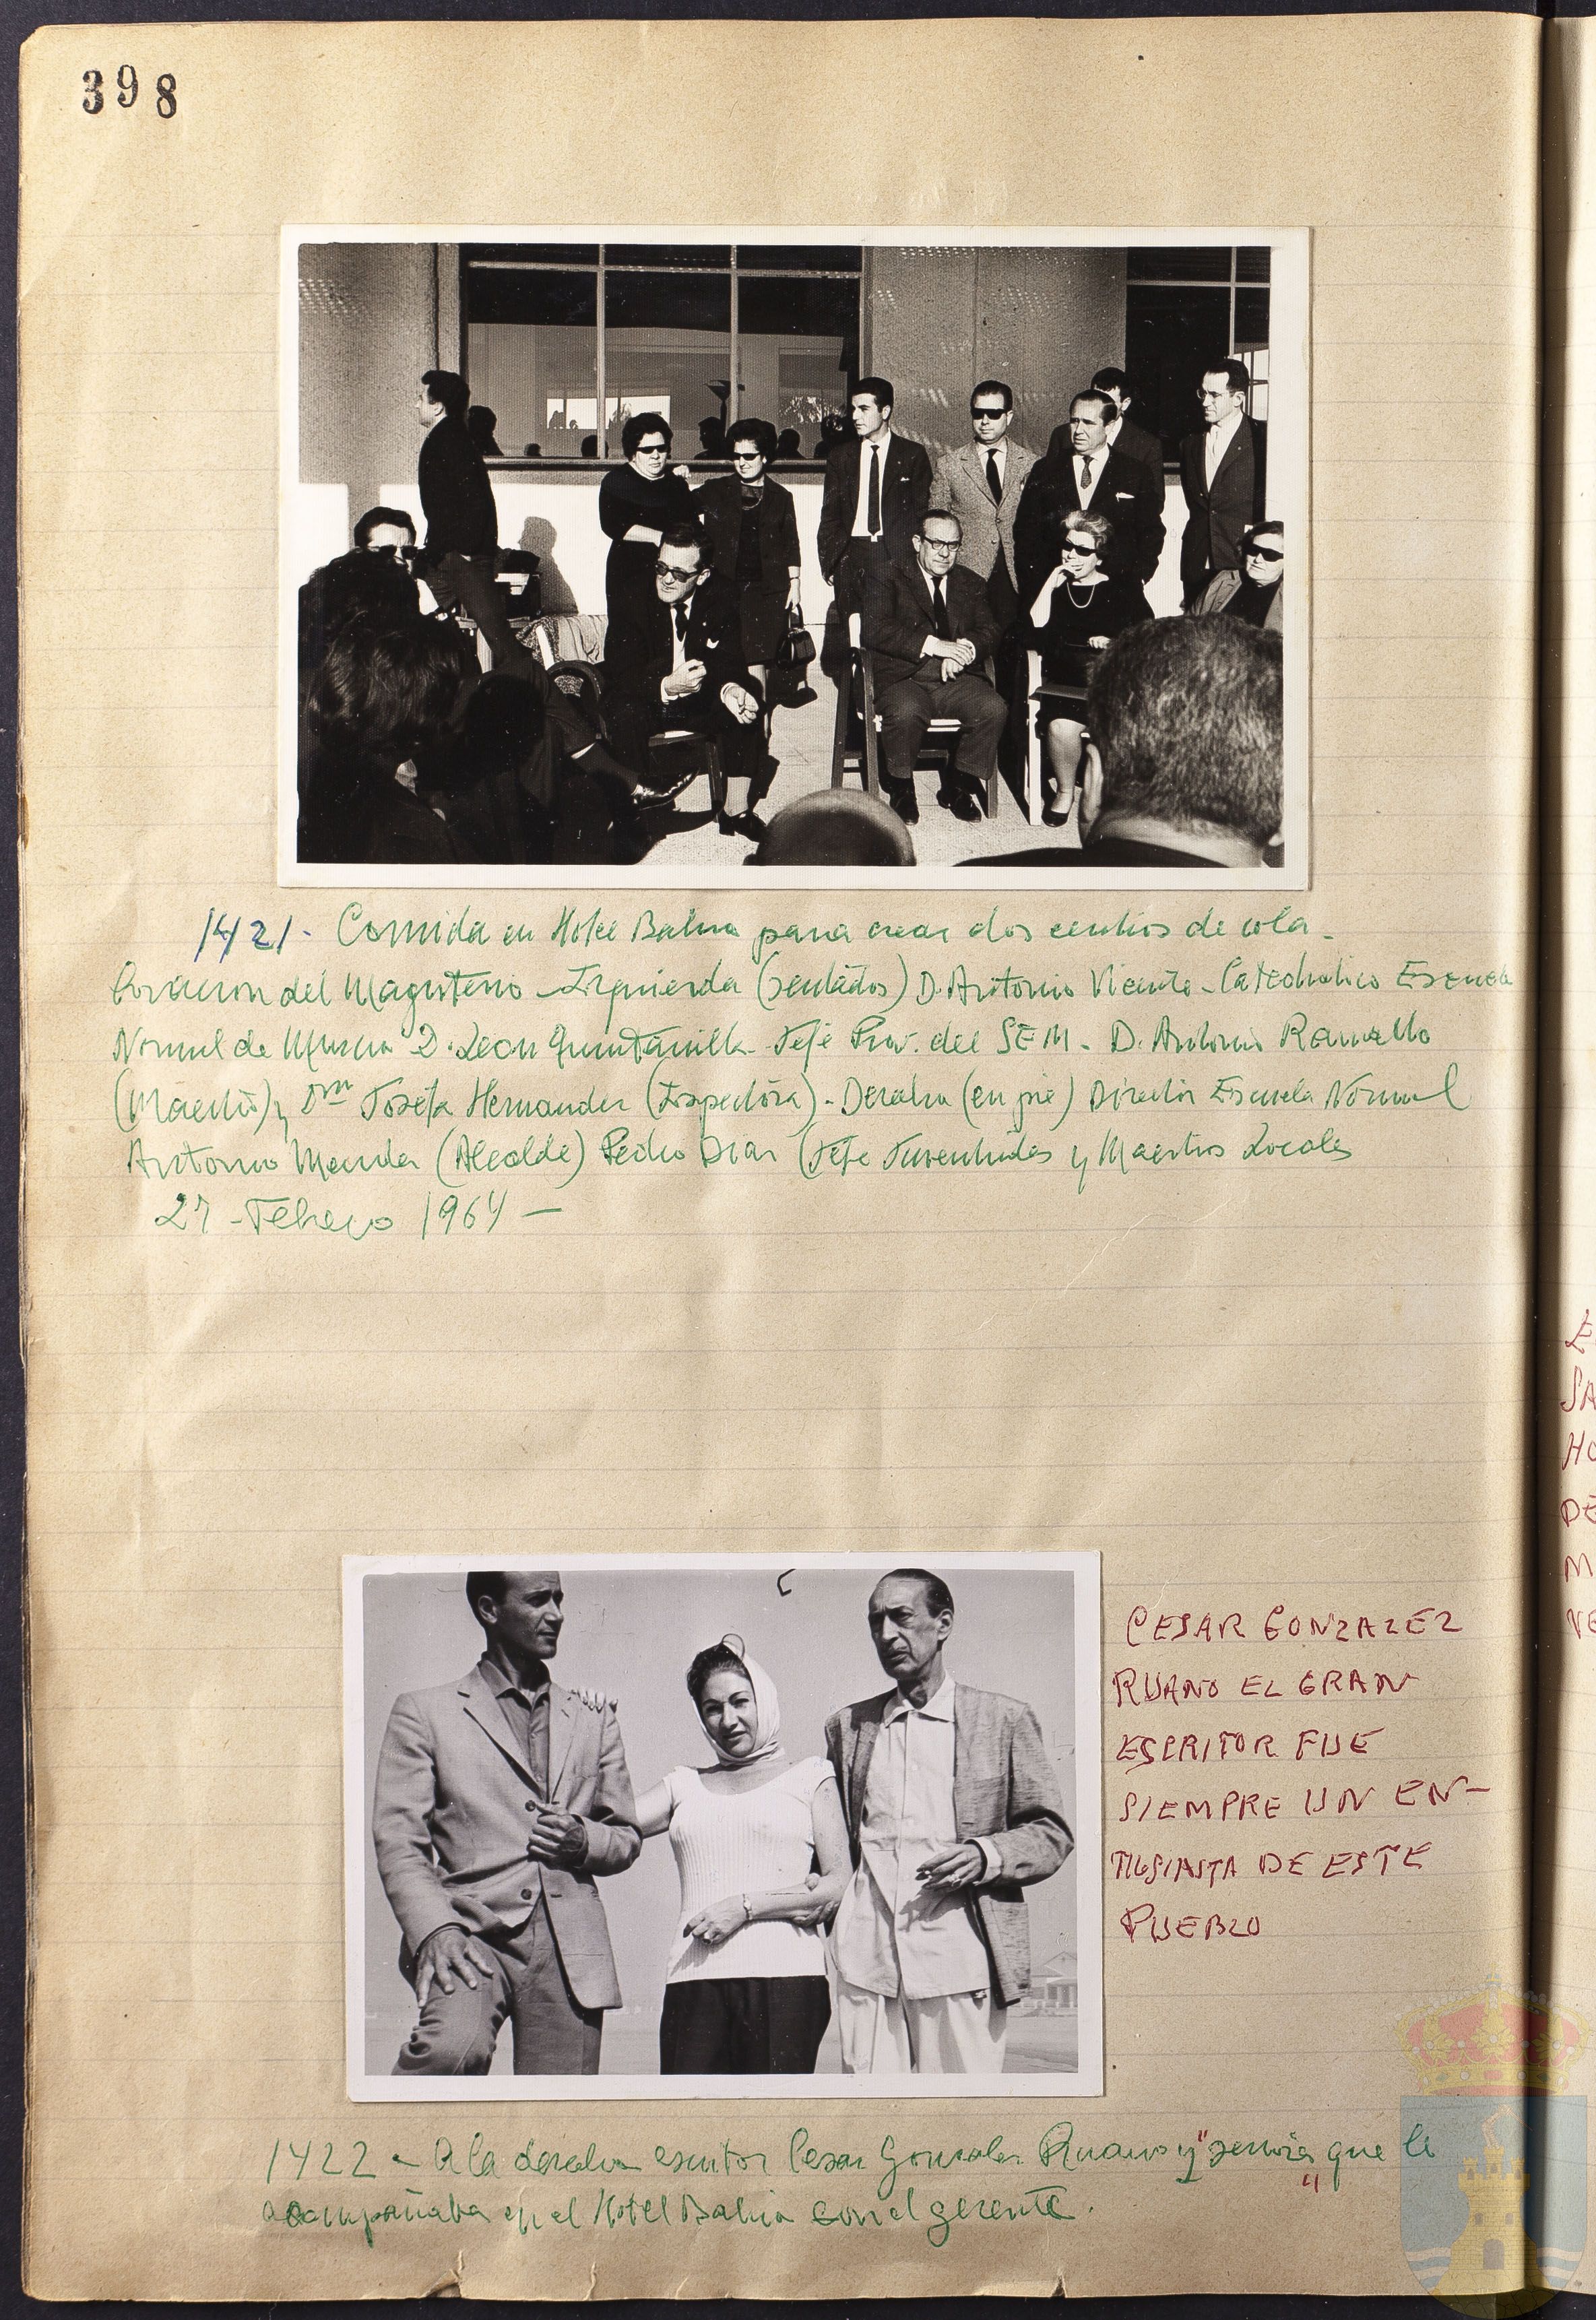 398
1421- Comida en Hotel Bahia para crear dos centros de cola-
boracion del Magisterio - Izquierda (sentados) D. Antonio Vicente - Catedratico Escuela
Normal de Murcia D. Leon Quintanilla - Jefe Prov. del SEM - D. Antonio Ramallo
(Maestro) y Dña Josefa Hernandez (Inspectora) - Derecha (en pie) Director Escuela Normal
Antonio Mendez (Alcalde) Pedro Diaz (Jefe Juventudes y Maestros Locales
27 - Febrero 1964 -
CESAR GONZALEZ
RUANO EL GRAN
ESCRITOR FUE
SIEMPRE UN EN-
TUSIASTA DE ESTE
PUEBLO
1422 - A la derecha escritor Cesar Gonzalez Ruano y "señora" que le
acompañaba en el Hotel Bahia con el gerente.